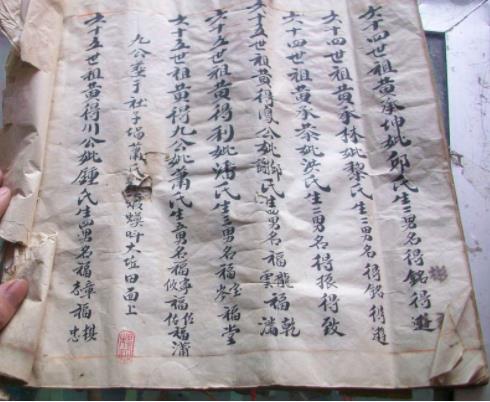 六十四世祖黄承坤妣邱氏生二男名得銘得遊
六十四世祖黄承林妣黎氏生二男名得銘得遊
六十四世祖黄承茶妣洪氏生二男名得振得致
六十五世祖黄得公妣邱謝氏生四男名福龍雲福乾滿
六十五世祖黄得利妣潘氏生三男名福岑福堂
六十五世祖黄得九公妣蕭氏生五男名福亭攸福任佑福蒲
九公葬于社子蕭氏大坵田面上
六十五世祖黄得川公妣鍾氏生四男名福章志福棋忠